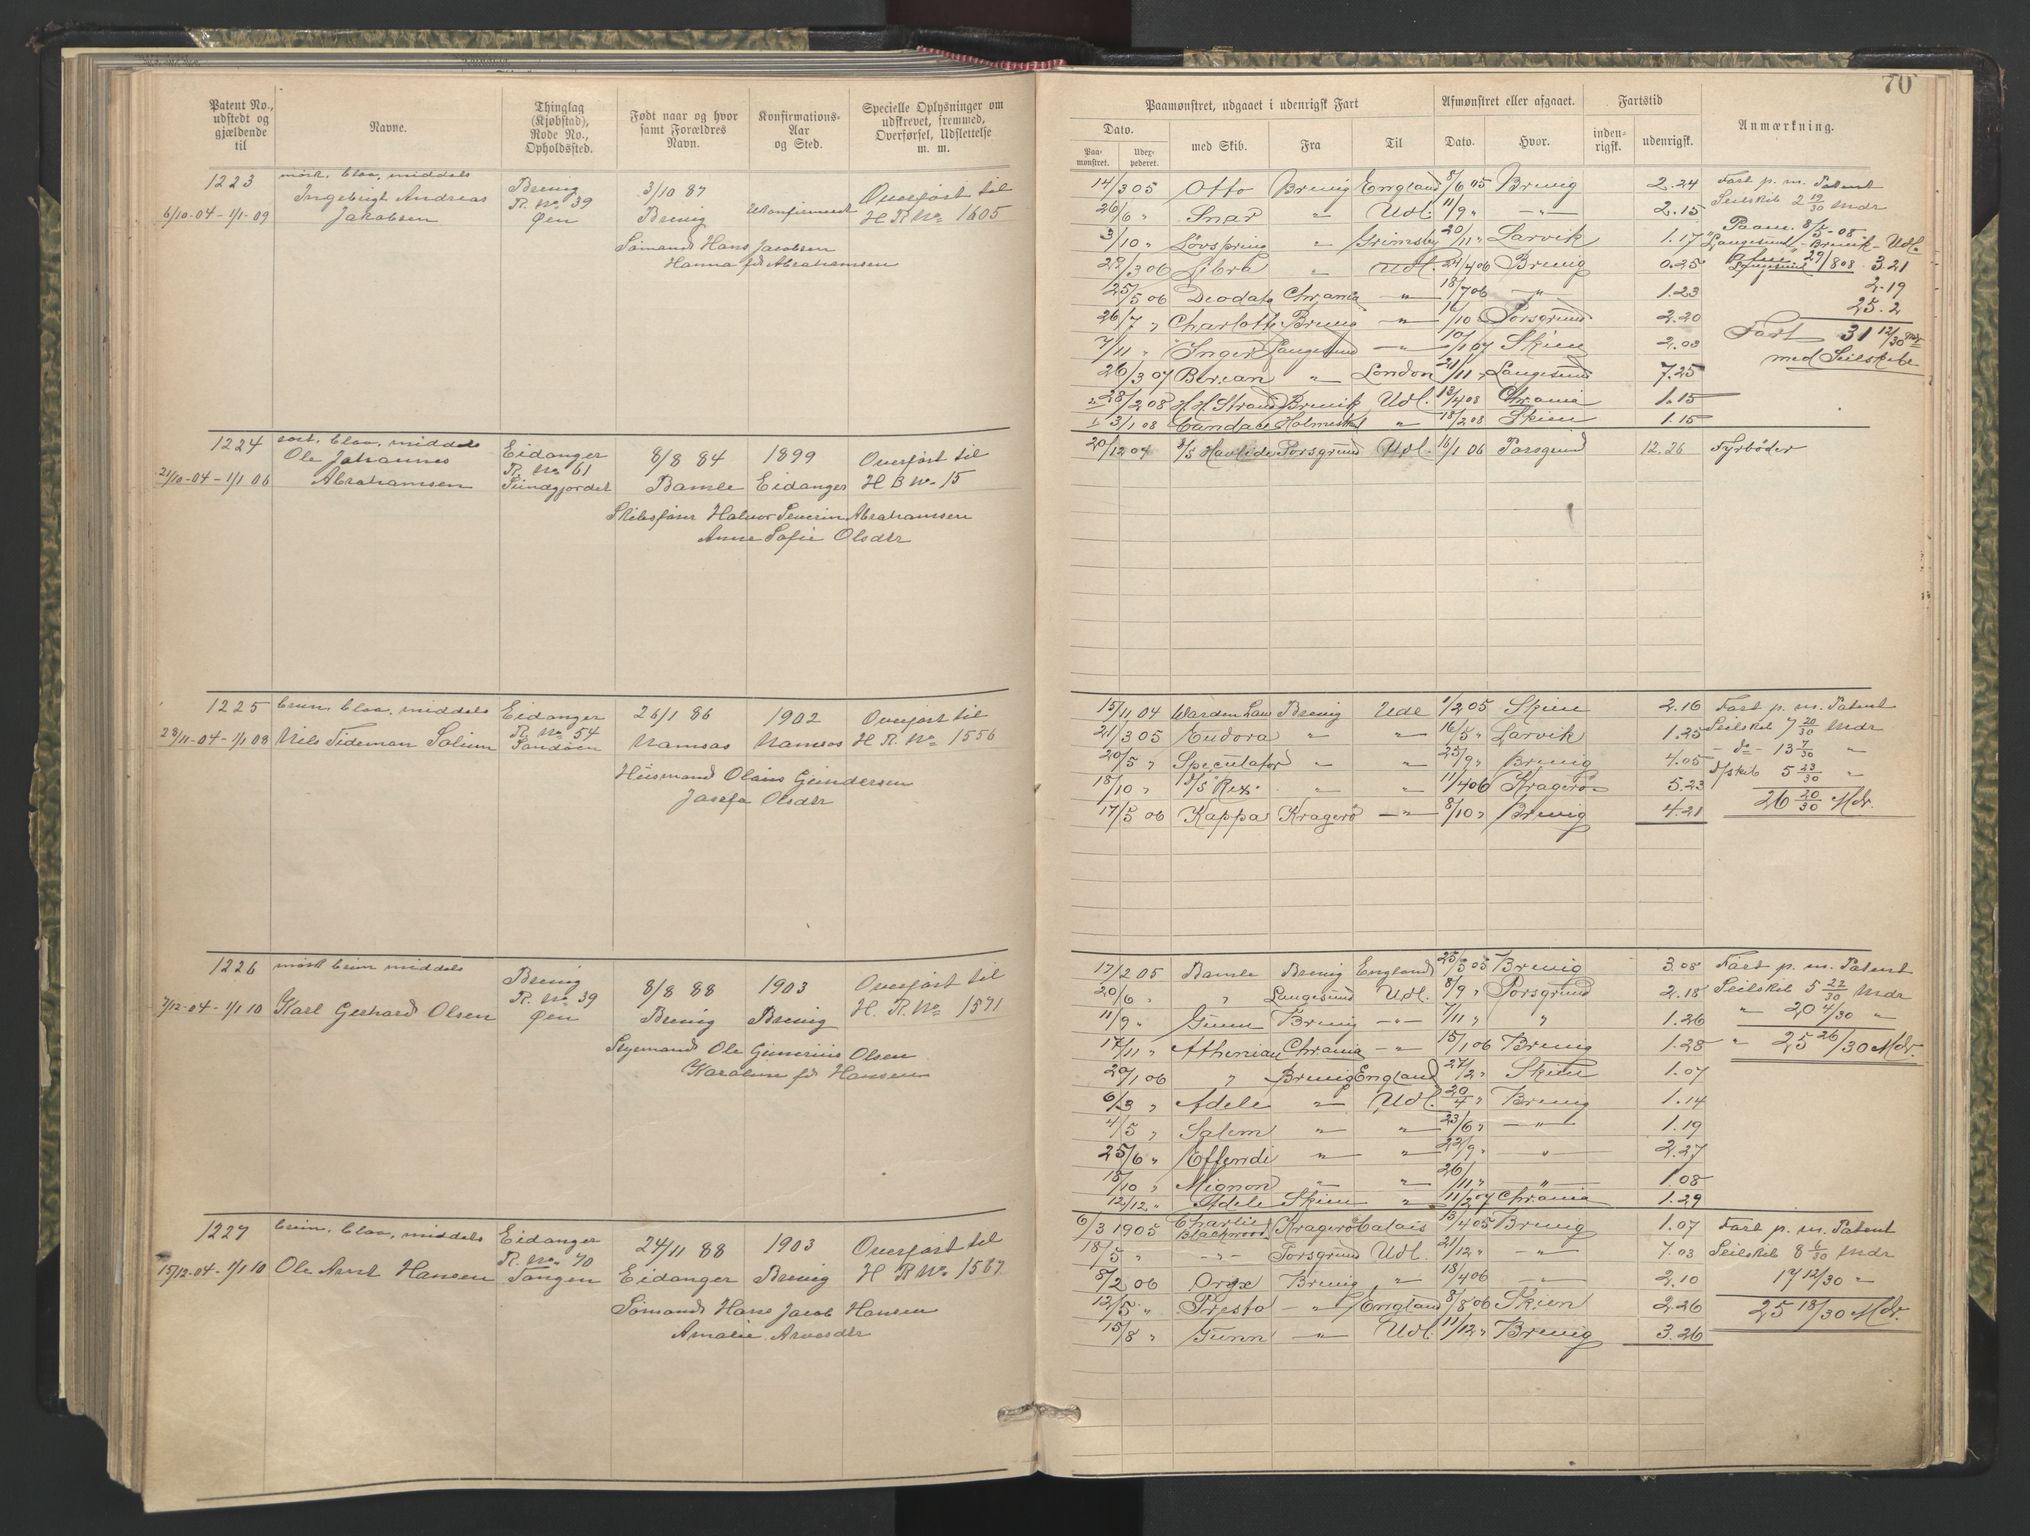 70
Patent No., udstedt og gjældende til
Navne.
Thinglag (Kjøbstad), Rode No., Opholdssted.
Født naar og hvor samt Forældres Navn.
Konfirmations-Aar og Sted.
Specielle Oplysninger om udskrevet, fremmed, Overførsel, Udslettelse m. m.
1223 mørk, blaa, middels Brevig 3/10 87 Overført til
Ingebrigt Andreas R. No 39
6/10-04-1/1-09 Jakobsen Øen Brevig Ukonfirmeret H R No 1605
Sømand Hans Jacobsen
Hanna fd Abrahamsen
1224 sort, blaa, middels Eidanger 8/8 84 1899 Overført til
Ole Johannes R. No 61
21/10-04-1/1 06 Abrahamsen Bamle Eidanger H B No 15
Skibsfører Halvor Severin Abrahamsen
Anne Sofie Olsdtr
1225 brun, blaa, middels Eidanger 26/1 86 1902 Overført til
R. No 54
28/11-04-1/1 08 Nils Tideman Solium Sandøen Namsos Namsos H R. No 1556
Husmand Olaus Gundersen
Josefa Olsdtr
1226 mørk brun middels Brevig 8/8 88 1903 Overført til
R. No 39
7/12-04-1/1 10 Karl Gerhard Olsen Øen Brevig Brevig H. R. No 1571
Styrmand Ole Gunerius Olsen
Karoline fd Hansen
1227 brun, blaa, middels Eidanger 24/11 88 1903 Overført til
R. No 70
15/12-04-1/1 10 Ole Arnt Hansen Tangen Eidanger Brevig H R No 1587
Sømand Hans Jacob Hansen
Amalie Arvesdtr
Paamønstret, udgaaet i udenrigsk Fart
Afmønstret eller afgaaet.
Fartstid
Anmærkning.
Dato. med Skib. Fra Til Dato. Hvor. inden-rigsk. udenrigsk.
Paa-mønstret. Udex-pederet.
14/3 05 Otto Brevig England 8/6 05 Brevig 2.24 Fart p. m. Patent
26/6 " Snar " Udl. 11/9 " —"— 2.15 Seilskib 2 19/30 Mdr
3/10 " Løvspring " Grimsby 20/11 " Larvik 1.17 Paam. 8/5-08
Langesund - Brevik - Udl.
22/3 06 Libra " Udl 21/4 06 Brevig 0.25 Langesund 29/8 08 3.21
25/5 06 Deodata Chrania —"— 18/7 06 —"— 1.23 2.19
26/7 " Charlotte Brevig —"— 16/10 " Porsgrund 2.20 25.2
7/11 " Inger Langesund —"— 10/1 07 Skien 2.03 Fart 31 12/30 Mdr
26/3 07 Berean " London 21/11 " Langesund 7.25 med Seilskibe
28/2 08 H. H. Strand Brevik Udl. 13/4 08 Chrania 1.15
3/1 08 Holmestrand " 18/2 08 Skien 1.15
20/12 04 S/S Porsgrund Udl. 16/1 06 Porsgrund 12.26 Fyrbøder
15/11 04 Warden Law Brevig Udl 1/2 05 Skien 2.16 Fart p. m. Patent
21/3 05 Eudora " " 16/5 " Larvik 1.25 Seilskib 7 20/30 Mdr
20/5 " Speculator " " 25/9 " Brevig 4.05 - do - 13 7/30 "
18/10 " S/S Rex " " 11/4 06 Kragerø 5.23 D/skib 5 23/30 "
17/5 06 Kappa Kragerø —"— 8/10 " Brevig 4.21 26 20/30 Mdr.
17/2 05 Bamle Brevig England 25/5 05 Brevig 3.08 Fart p. m. Patent
20/6 " " Langesund Udl. 8/9 " Porsgrund 2.18 Seilskib 5 22/30 Mdr
11/9 " Gunn Brevig —"— 7/11 " " 1.26 " 20 4/30 "
17/11 " Athenian Chrania —"— 15/1 06 Brevig 1.28 " 25 26/30 Mdr.
20/1 06 " Brevig England 27/2 " Skien 1.07
6/3 " Adele " Udl. 20/4 " Brevig 1.14
4/5 " Salem " " 23/6 " —"— 1.19
25/6 " Effendi " " 22/9 " " 2.27
18/10 " Mignon " " 26/11 " " 1.08
12/12 " Adele Skien " 11/2 07 Chrania 1.29
6/3 1905 Charlie Blackwood Kragerø Calais 13/4 05 Brevig 1.07 Fart p. m. Patent
18/5 " —"— Porsgrund Udl. 21/12 " —"— 7.03 Seilskib 8 6/30 Mdr
8/2 06 Oryx Brevig " 18/4 06 " 2.10 17 12/30 "
12/5 " Presto —"— England 8/8 06 Skien 2.26 25 18/30 Mdr.
15/8 " Gunn —"— Udl. 11/12 " Brevig 3.26